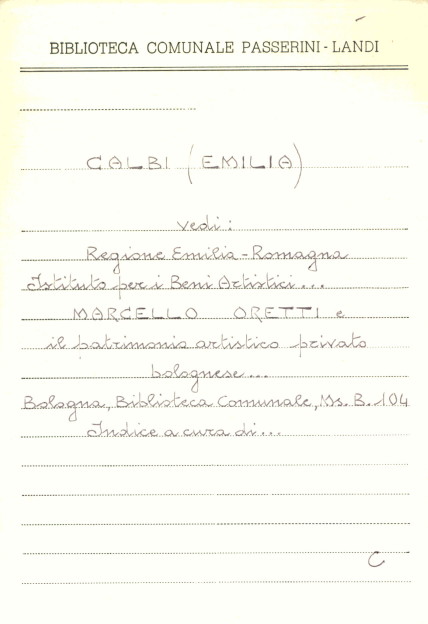 BIBLIOTECA COMUNALE PASSERINI-LANDI
CALBI (EMILIA)
vedi:
Regione Emilia-Romagna
Istituto per i Beni Artistici...
MARCELLO ORETTI e
il patrimonio artistico privato
bolognese...
Bologna, Biblioteca Comunale, Ms. B. 104
Indice a cura di...
C